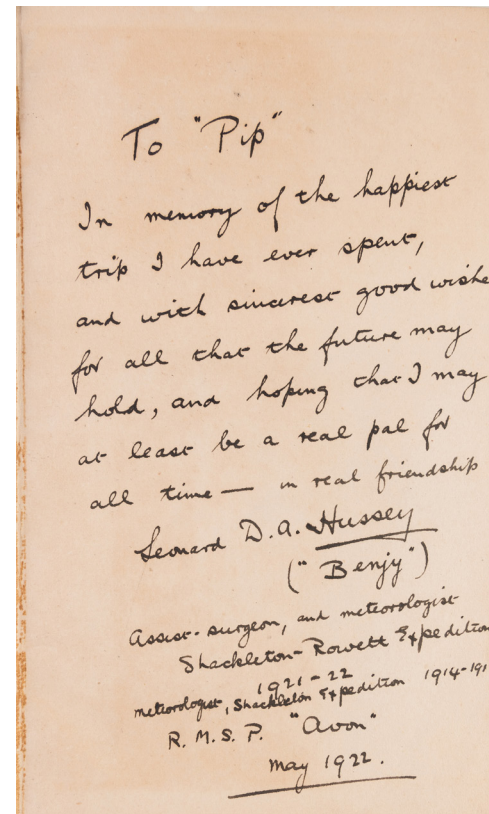 To "Pip"
In memory of the happiest
trip I have ever spent,
and with sincerest good wishe
for all that the future may
hold, and hoping that I may
at least be a real pal for
all time — in real friendship
Leonard D.A. Hussey
("Benjy")
Assist-surgeon, and meteorologist
Shackleton-Rowett Expedition
1921-22
meteorologist, Shackleton Expedition 1914-191
R.M.S.P. "Avon"
May 1922.